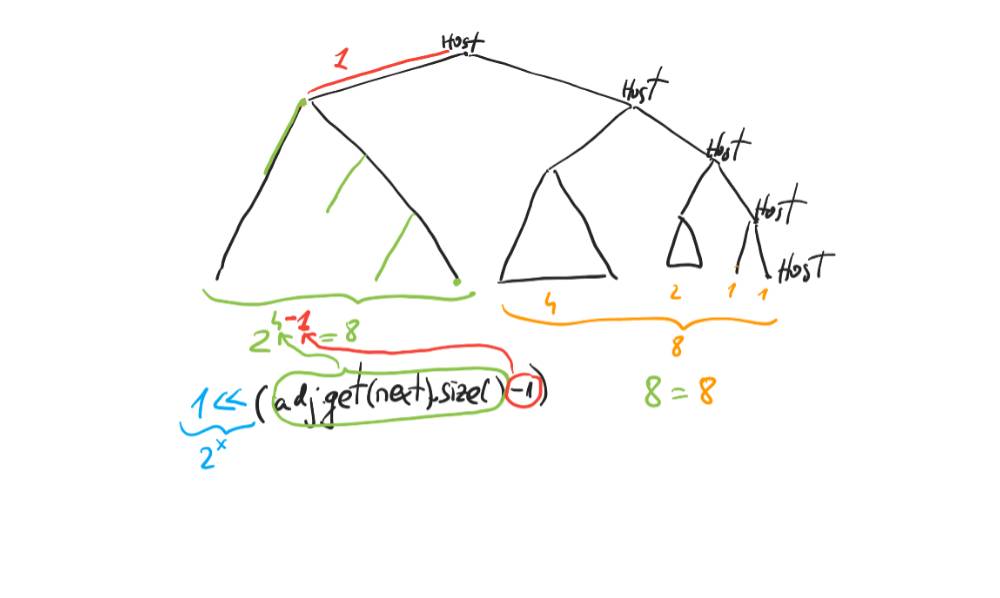 Host
1
Host
Host
Host
Host
4 2 1 1
2^4-1 = 8
8
1 << (adj.get(next).size() -1)
8 = 8
2^x